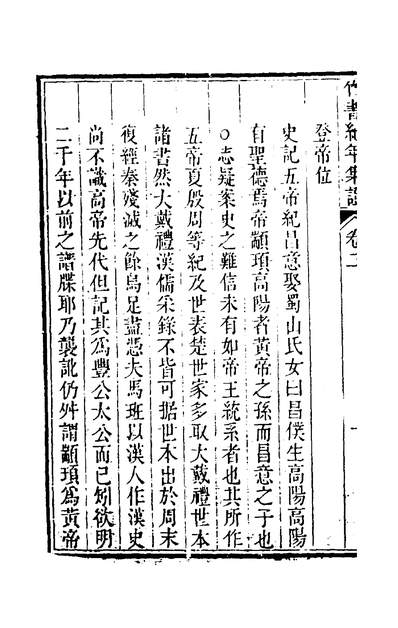 竹書紀年集證 卷二
登帝位
史記五帝紀昌意娶蜀山氏女曰昌僕生高陽高陽
有聖德焉帝顓頊高陽者黃帝之孫而昌意之子也
○志疑案史之難信未有如帝王統系者也其所作
五帝夏殷周等紀及世表楚世家多取大戴禮世本
諸書然大戴禮漢儒采錄不皆可据世本出於周末
復經秦殘滅之餘烏足盡憑夫馬班以漢人作漢史
尚不識高帝先代但記其為豐公太公而已矧欲明
二千年以前之譜牒耶乃襲訛仍舛謂顓頊為黃帝